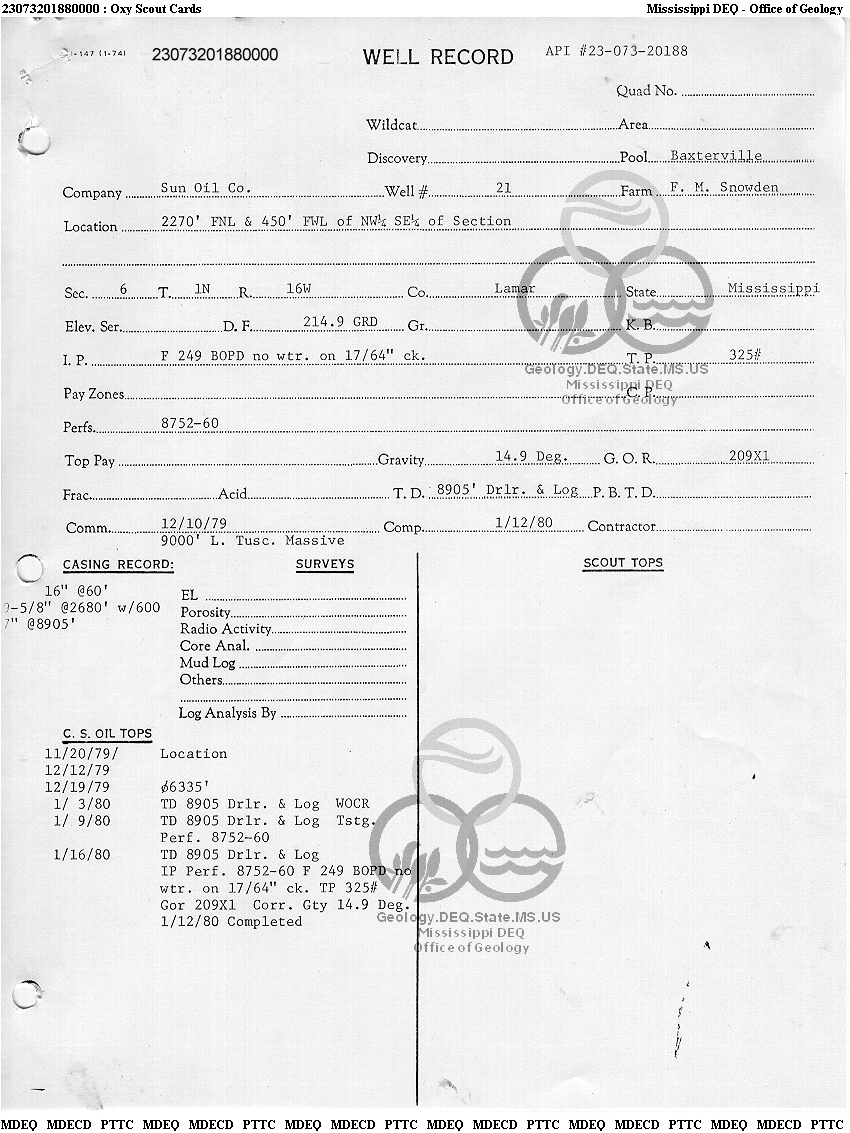 23073201880000 : Oxy Scout Cards Mississippi DEQ - Office of Geology
-147 (1-74) 23073201880000 WELL RECORD API #23-073-20188
Quad No.
Wildcat Area
Discovery Pool Baxterville
Company Sun Oil Co. Well # 21 Farm F. M. Snowden
Location 2270' FNL & 450' FWL of NW¼ SE¼ of Section
Sec. 6 T. 1N R. 16W Co. Lamar State Mississippi
Elev. Ser. D. F. 214.9 GRD Gr. K. B.
I. P. F 249 BOPD no wtr. on 17/64" ck. T. P. 325#
Geology.DEQ.State.MS.US
Mississippi DEQ
Pay Zones C. P.
Office of Geology
Perfs. 8752-60
Top Pay Gravity 14.9 Deg. G. O. R. 209X1
Frac. Acid T. D. 8905' Drlr. & Log P. B. T. D.
Comm. 12/10/79 Comp. 1/12/80 Contractor
9000' L. Tusc. Massive
CASING RECORD: SURVEYS SCOUT TOPS
16" @60'
9-5/8" @2680' w/600
7" @8905'
EL
Porosity
Radio Activity
Core Anal.
Mud Log
Others
Log Analysis By
C. S. OIL TOPS
11/20/79/ Location
12/12/79
12/19/79 ɸ6335'
1/ 3/80 TD 8905 Drlr. & Log WOCR
1/ 9/80 TD 8905 Drlr. & Log Tstg.
Perf. 8752-60
1/16/80 TD 8905 Drlr. & Log
IP Perf. 8752-60 F 249 BOPD no
wtr. on 17/64" ck. TP 325#
Gor 209X1 Corr. Gty 14.9 Deg.
1/12/80 Completed
Geology.DEQ.State.MS.US
Mississippi DEQ
Office of Geology
MDEQ MDECD PTTC MDEQ MDECD PTTC MDEQ MDECD PTTC MDEQ MDECD PTTC MDEQ MDECD PTTC MDEQ MDECD PTTC